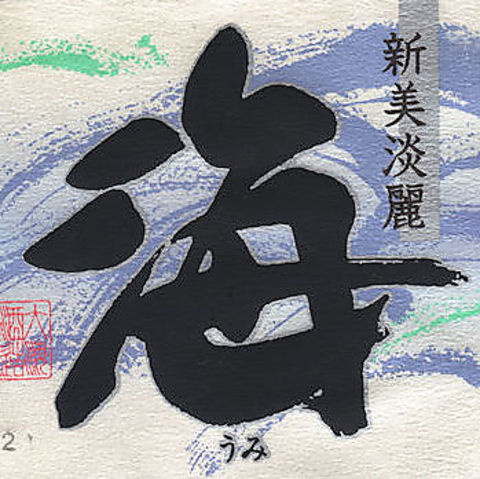 新美淡麗
海
うみ
2